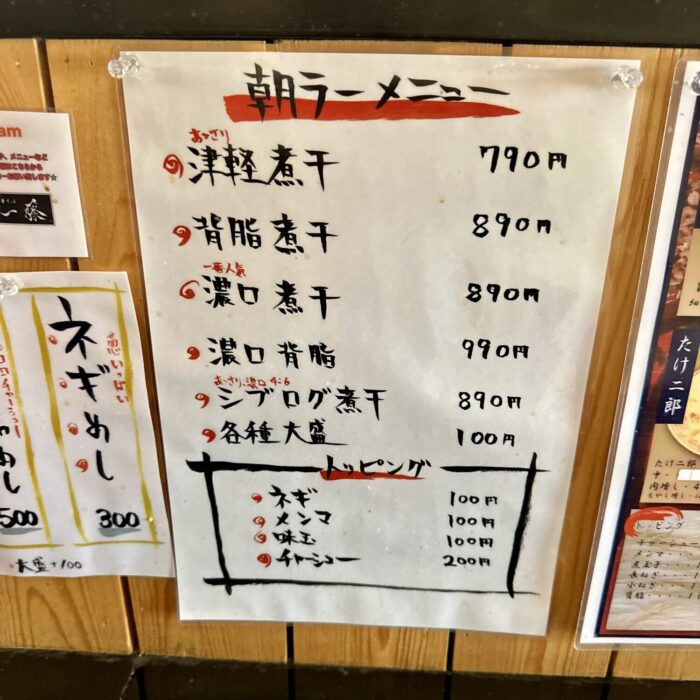 朝ラーメニュー
あっさり
津軽煮干 790円
背脂煮干 890円
一番人気
濃口煮干 890円
濃口背脂 990円
あっさり、濃口 4:6
シブログ煮干 890円
各種大盛 100円
トッピング
ネギ 100円
メンマ 100円
味玉 100円
チャーシュー 200円
am
ネギめし
いっぱい
300
500
大盛+100
たけ二郎
たけ二郎
トッピング
メンマ
煮玉子
長ねぎ
小ねぎ
背脂